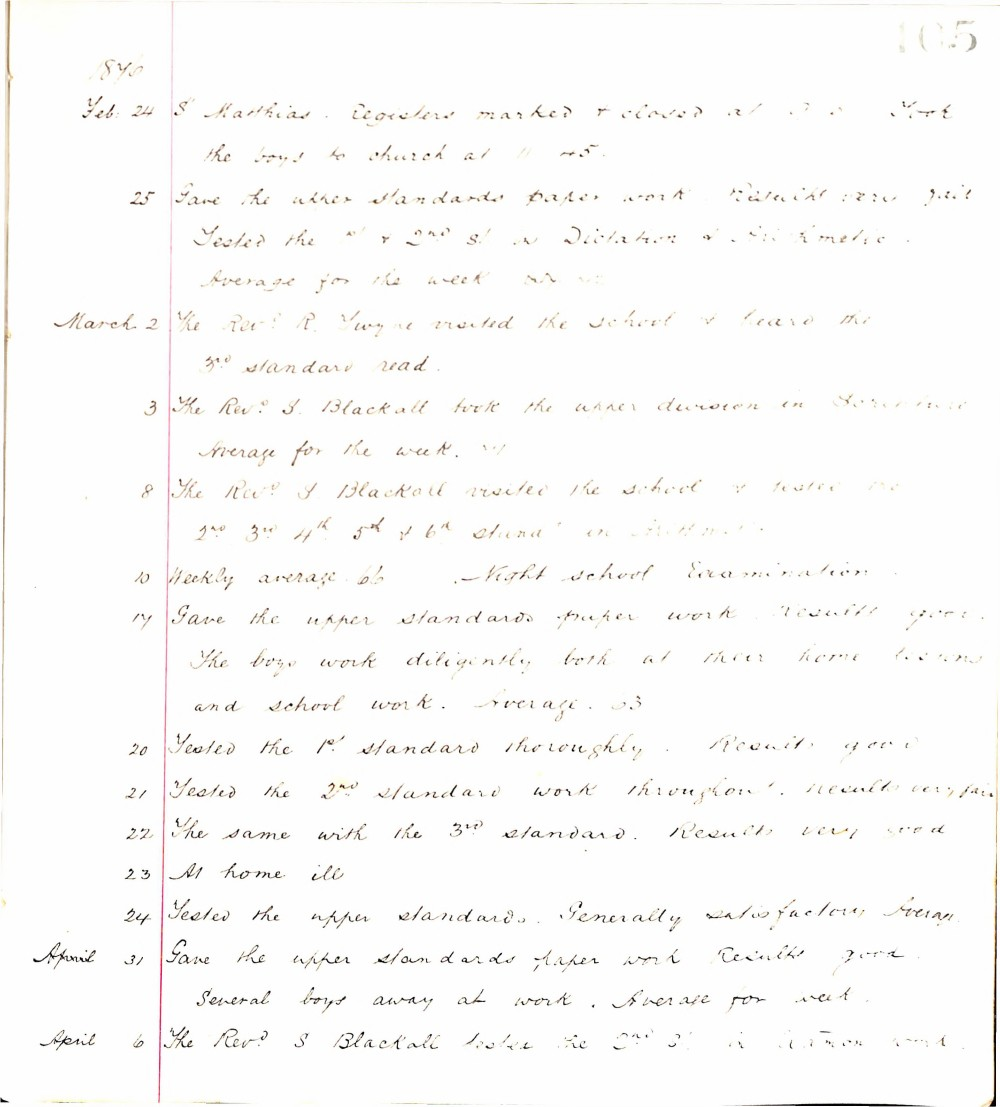 105
1876
Feb. 24 St Matthias. Registers marked & closed at Took
the boys to church at 11 45.
25 Gave the upper standards paper work Results very fair
Tested the 1st & 2nd St in Dictation & Arithmetic.
Average for the week
March 2 The Revd R. Twyne visited the school & heard the
3rd standard read.
3 The Revd S. Blackall took the upper division in Scripture
Average for the week.
8 The Revd S Blackall visited the school & tested the
2nd 3rd 4th 5th & 6th stand in
10 Weekly average 66 Night school Examination.
17 Gave the upper standards paper work Results good.
The boys work diligently both at their home lessons
and school work. Average. 63
20 Tested the 1st standard thoroughly. Results good
21 Tested the 2nd standard work throughout. Results very fair
22 The same with the 3rd standard. Results very good
23 At home ill
24 Tested the upper standards. Generally satisfactory Average
April 31 Gave the upper standards paper work Results good.
Several boys away at work. Average for week.
April 6 The Revd S Blackall tested the 2nd St in work.